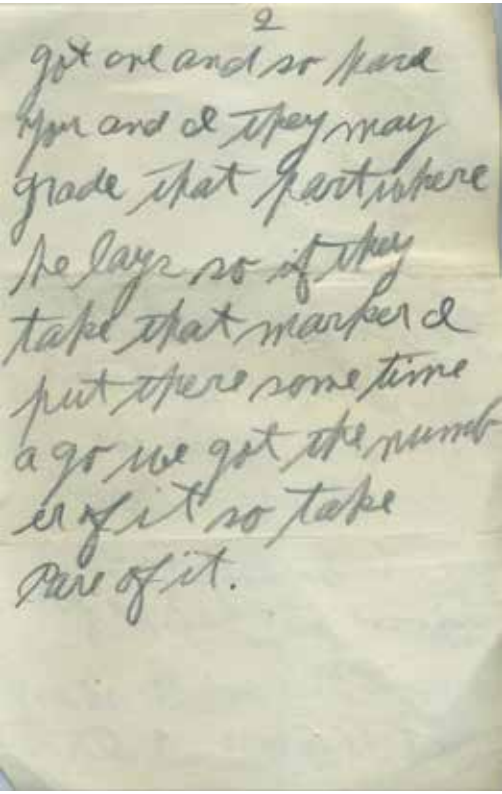 2
got one and so have
you and I they may
grade that part where
he lays so if they
take that marker I
put there some time
a go we got the numb
er of it so take
care of it.